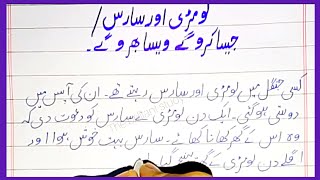 لومڑی اور سارس/
جیسا کرو گے ویسا بھرو گے۔
کسی جنگل میں لومڑی اور سارس رہتے تھے۔ ان کی آپس میں
دوستی ہو گئی۔ ایک دن لومڑی نے سارس کو دعوت دی کہ
وہ اس کے گھر کھانا کھائے۔ سارس بہت خوش ہوا اور
اگلے دن لومڑی کے گھر